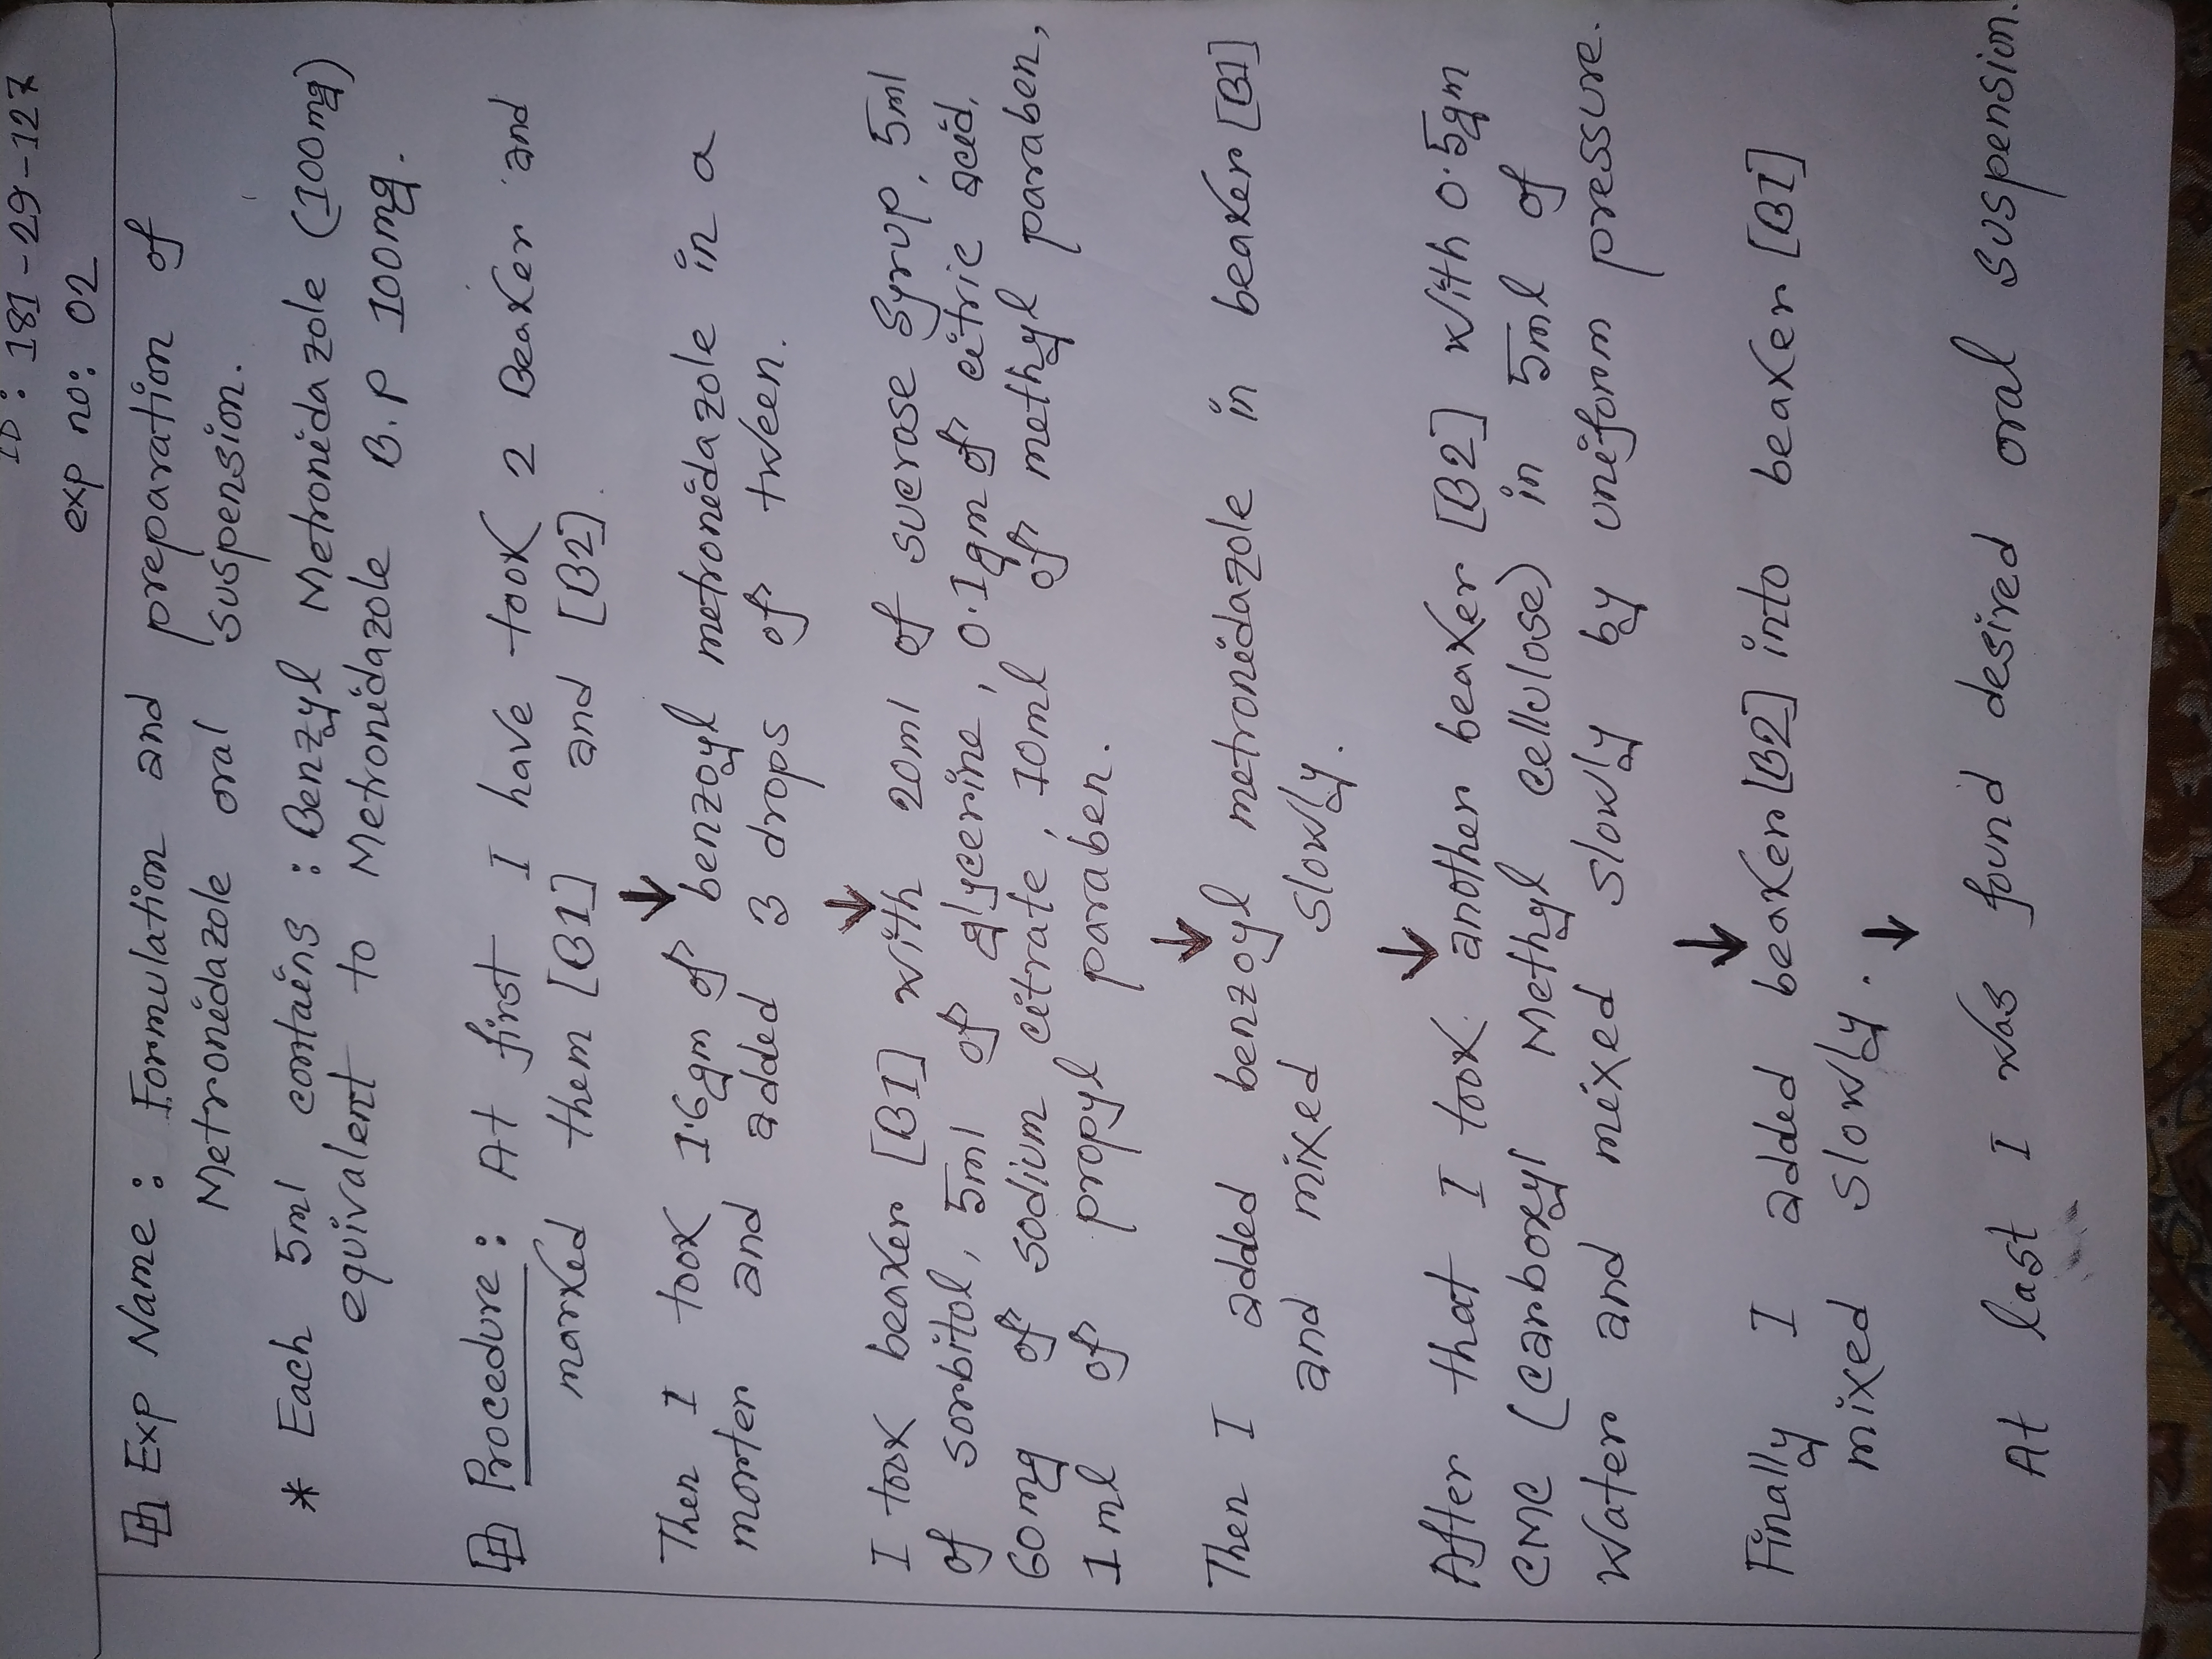 ID: 181-29-127
exp no: 02
Exp Name: Formulation and preparation of
Metronidazole oral suspension.
* Each 5ml contains: Benzyl Metronidazole (100mg)
equivalent to Metronidazole B.P 100mg.
Procedure: At first I have took 2 Beaker and
marked them [B1] and [B2].
Then I took 1.6gm of benzoyl metronidazole in a
morter and added 3 drops of tween.
I took beaker [B1] with 20ml of sucrose syrup, 5ml
of sorbitol, 5ml of glycerine, 0.1gm of citric acid,
60mg of sodium citrate, 10ml of methyl paraben,
1ml of propyl paraben.
Then I added benzoyl metronidazole in beaker [B1]
and mixed slowly.
After that I took another beaker [B2] with 0.5gm
CMC (Carboxyl Methyl cellulose) in 5ml of
water and mixed slowly by uniform pressure.
Finally I added beaker [B2] into beaker [B1]
mixed slowly.
At last I was found desired oral suspension.